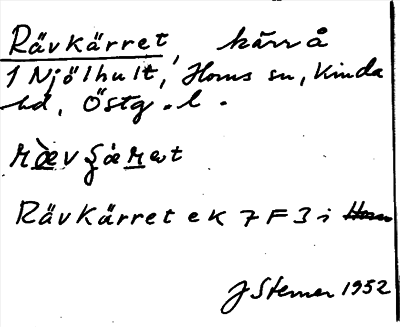 Rävkärret, kärr å
1 Njölhult, Horns sn, Kinda
hd, Östg. l.
Rävkärret ek 7 F 3 i Horn
J Sterner 1952